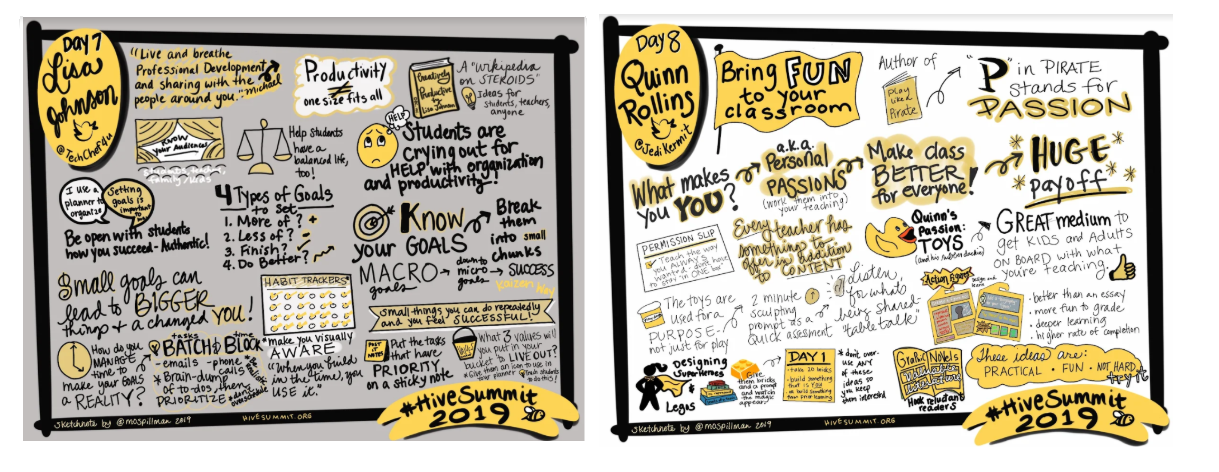 Day 7
Lisa
Johnson
@TechChef4u
"Live and breathe
Professional Development
and sharing with the
people around you."
Michael
Productivity
≠
one size fits all
Creatively
Productive
by
Lisa Johnson
A "Wikipedia
on STEROIDS"
Ideas for
students, teachers,
anyone
Know
Your Audience!
Help students
have a
balanced life,
too!
HELP
Students are
crying out for
HELP with organization
and productivity!
I use a
planner to
organize
Setting
goals is
important
to
Be open with students
how you succeed - Authentic!
4 Types of Goals
to Set
1. More of?
2. Less of?
3. Finish?
4. Do Better?
Know
your GOALS
Break
them
into small
chunks
MACRO
goals
down to
micro
goals
SUCCESS
Kaizen
Small goals can
lead to BIGGER
things & a changed YOU!
HABIT TRACKERS
make you visually
AWARE
small things you can do repeatedly
and you feel SUCCESSFUL!
How do you
MANAGE
time to
make your GOALS
a REALITY?
tasks
time
BATCH & BLOCK
- emails - phone
calls
* brain-dump
of to-dos then
PRIORITIZE
"When you build
in the time, you
USE it."
POST
IT
NOTES
Put the tasks
that have
PRIORITY
on a sticky note
What 3 values will
you put in your
bucket to LIVE OUT?
#HiveSummit
2019
sketchnote by @maspillman 2019
HIVESUMMIT.ORG
Day 8
Quinn
Rollins
@JediKermit
Bring FUN
to your
classroom
Author of
Play
Like a
Pirate
"P" in PIRATE
stands for
PASSION
What makes
you YOU?
a.k.a.
Personal
PASSIONS
(work them into
your teaching)
Make class
BETTER
for everyone!
HUGE
payoff
PERMISSION SLIP
Teach the way
you ALWAYS
wanted
Every teacher has
something to
offer in addition
to CONTENT
Quinn's
Passion:
TOYS
GREAT medium to
get KIDS and Adults
ON BOARD with what
you're teaching.
The toys are
used for a
PURPOSE-
not just for play
2 minute
sculpting
prompt as a
quick assessment
listen
for what's
being shared-
"table talk"
Action Figures
- better than an essay
- more fun to grade
- deeper learning
- higher rate of completion
Designing
Superheroes
Legos
Give
them bricks
and a prompt
and watch
the magic
appear
DAY 1
- take 20 bricks
- build something
that is YOU
* don't over-
use ANY
of these
ideas so
you keep
them interested
Graphic Novels
Hook reluctant
readers
These ideas are:
PRACTICAL · FUN · NOT HARD
try it
#HiveSummit
2019
sketchnote by @maspillman 2019
HIVESUMMIT.ORG